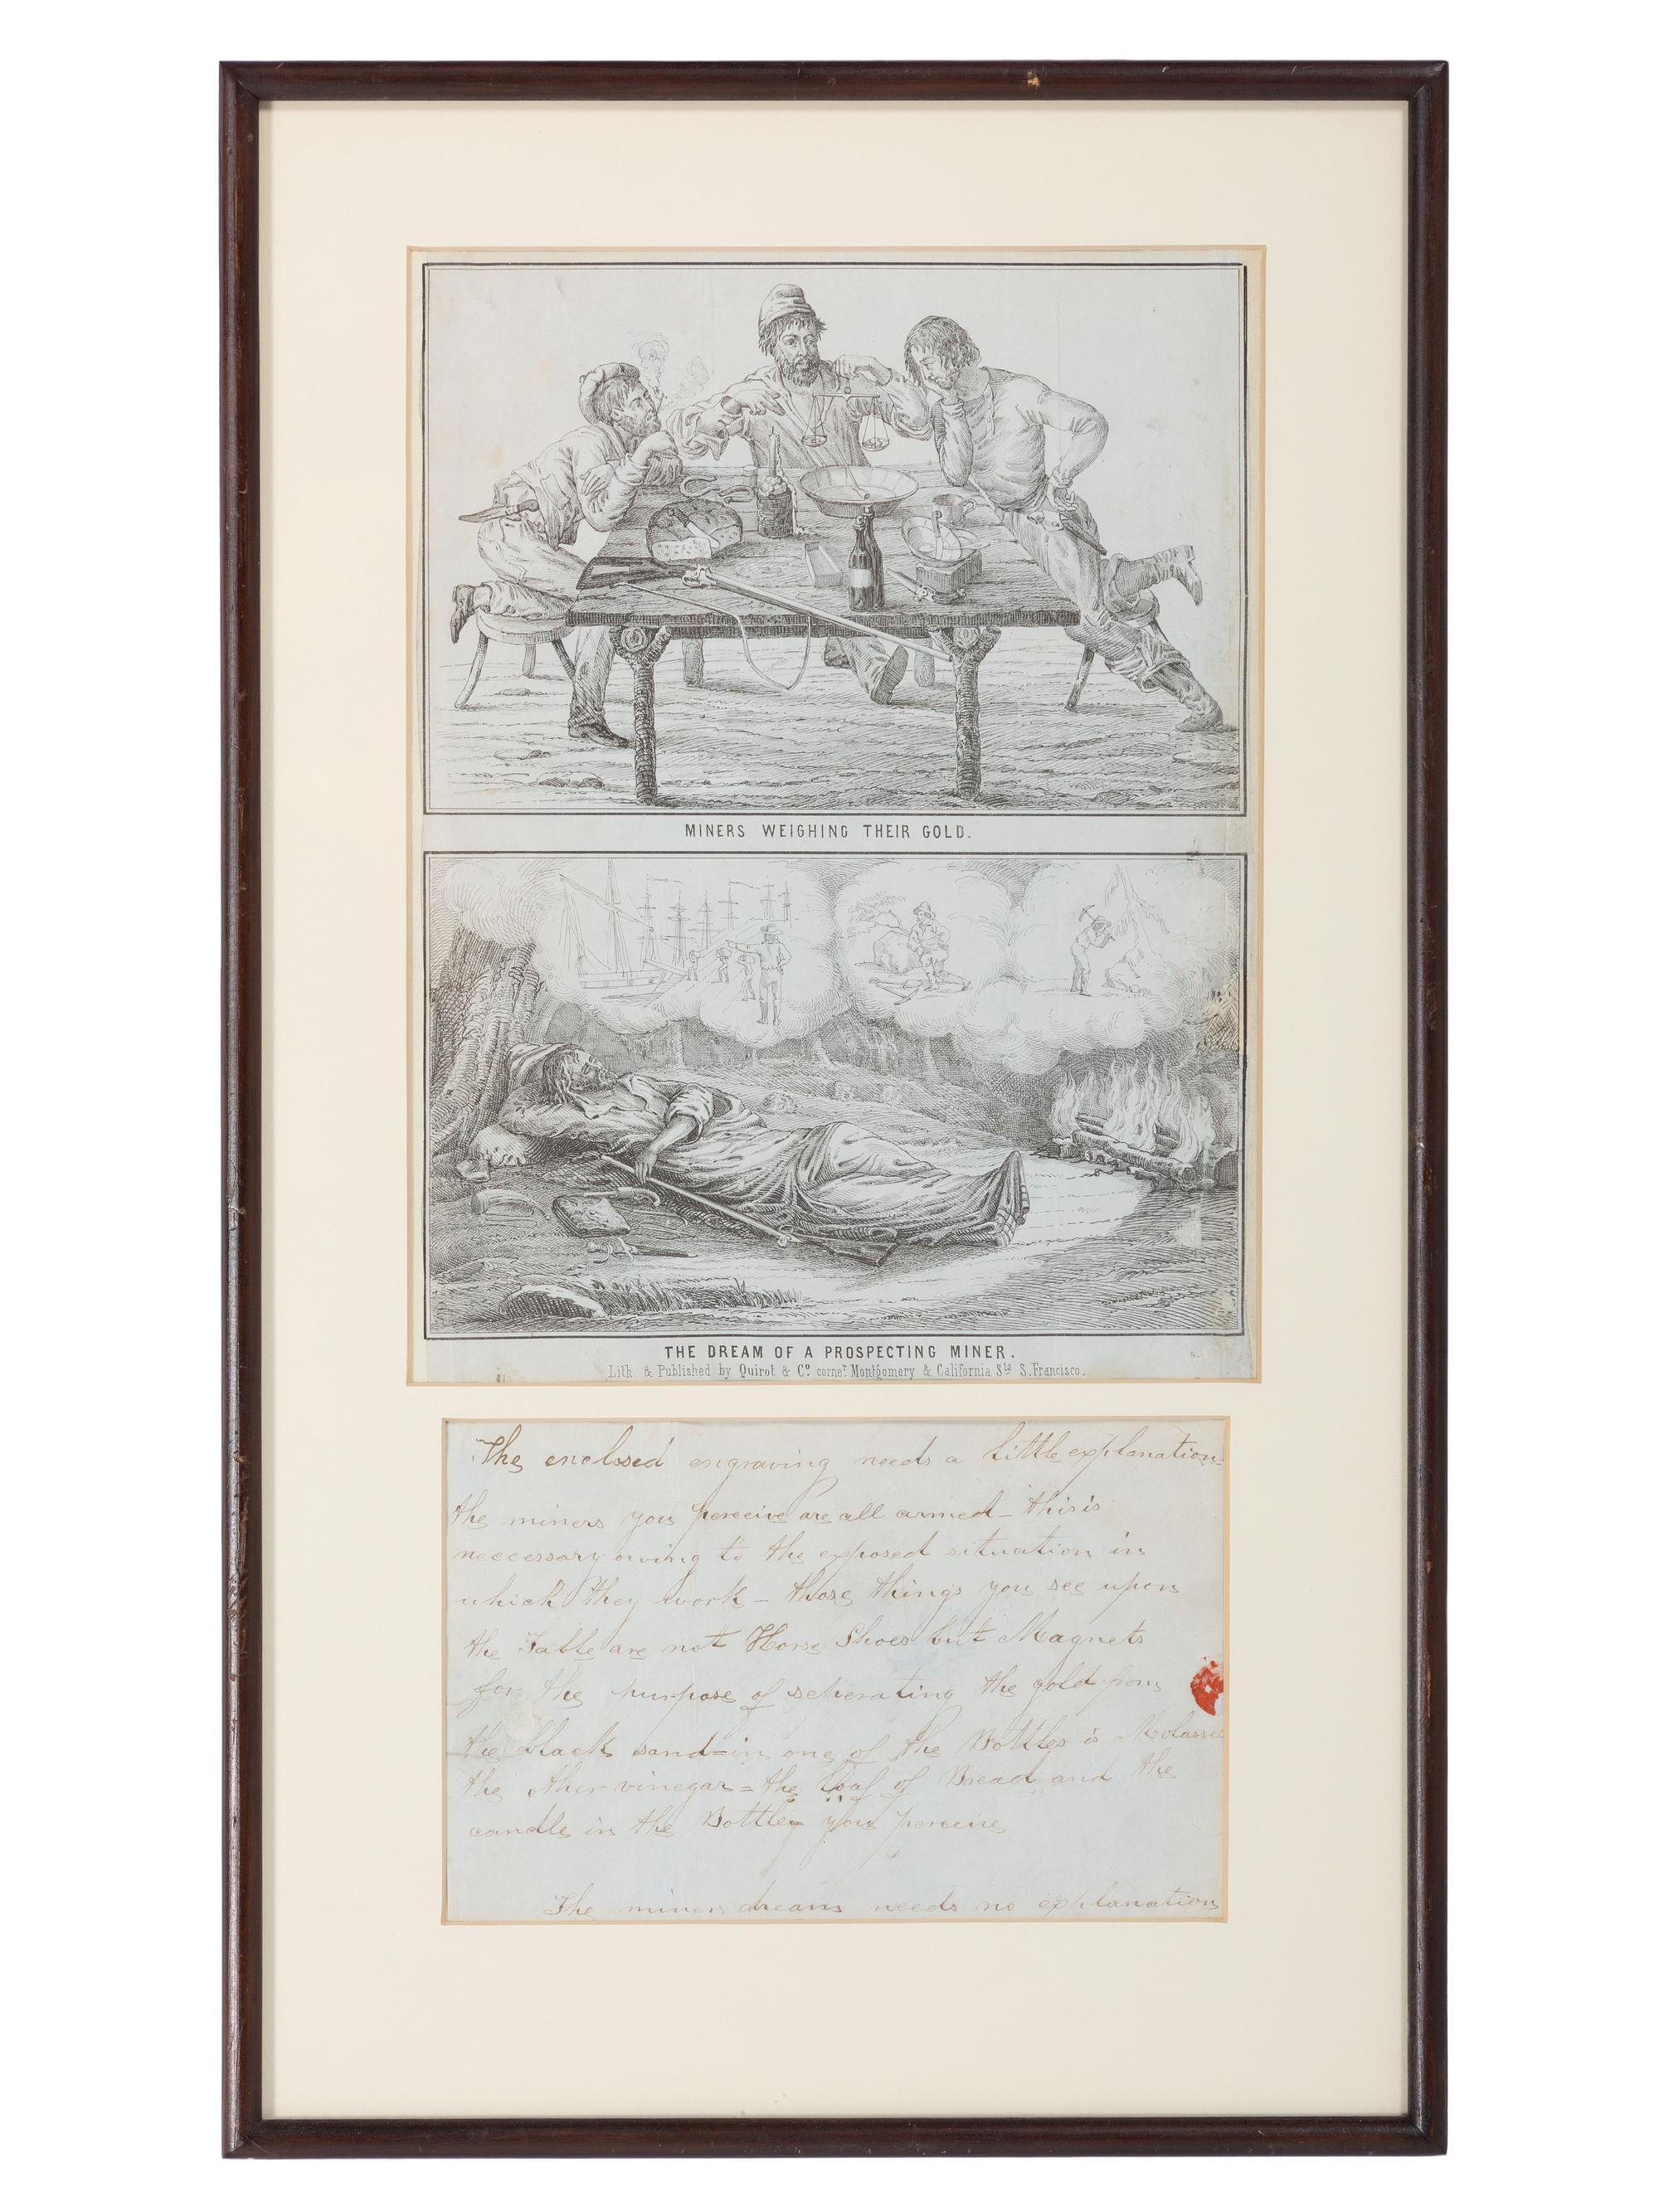 MINERS WEIGHING THEIR GOLD.
THE DREAM OF A PROSPECTING MINER.
Lith. & Published by Quirot & Co. corner Montgomery & California Sts S. Francisco.
The enclosed engraving needs a little explanation
the miners you perceive are all armed - this is
neccessary owing to the exposed situation in
which they work - those things you see upon
the Table are not Horse Shoes but Magnets
for the purpose of seperating the gold from
the black sand = in one of the Bottles is Molasses
the other vinegar = the loaf of Bread and the
candle in the Bottle you perceive
The miners dreams needs no explanation